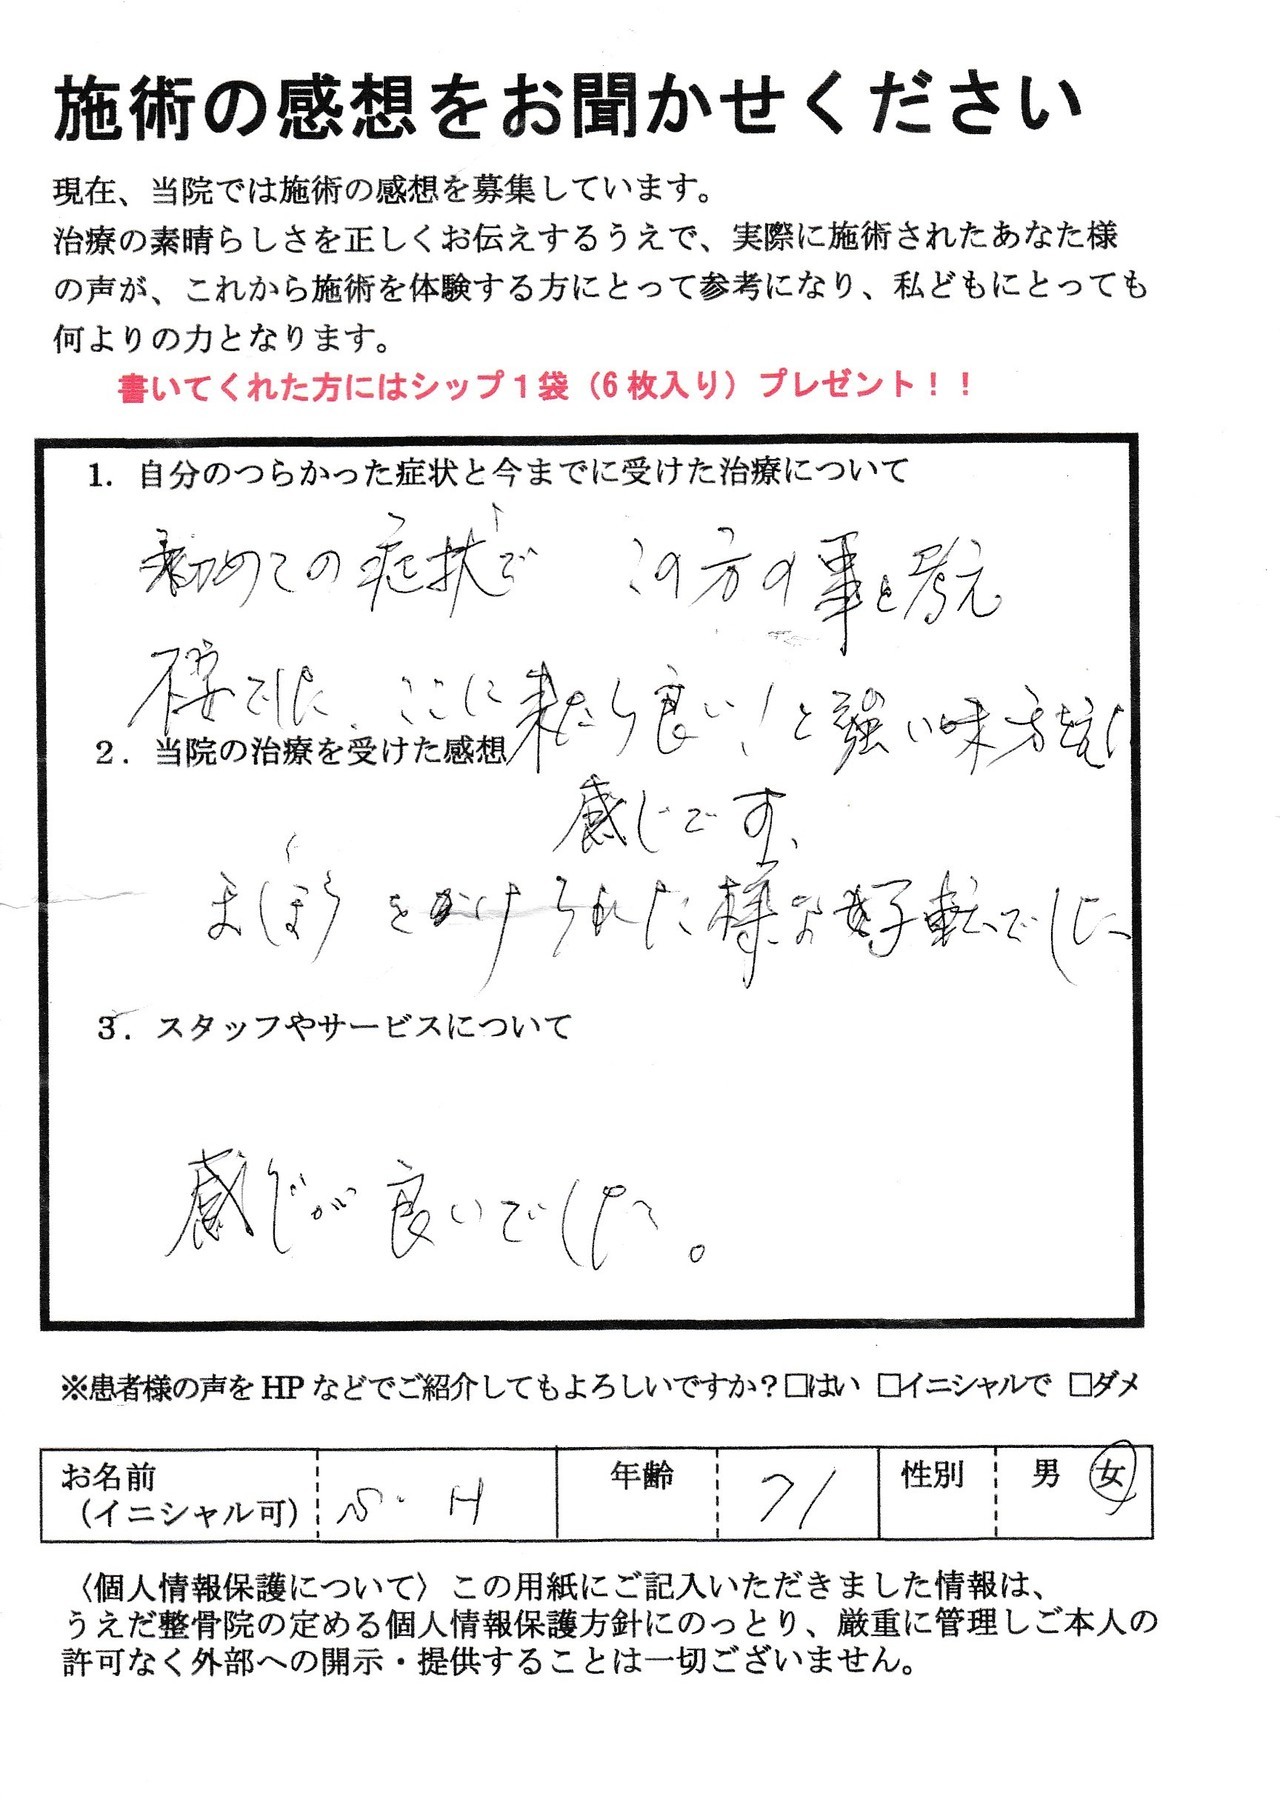 施術の感想をお聞かせください
現在、当院では施術の感想を募集しています。
治療の素晴らしさを正しくお伝えするうえで、実際に施術されたあなた様
の声が、これから施術を体験する方にとって参考になり、私どもにとっても
何よりの力となります。
書いてくれた方にはシップ１袋（6 枚入り）プレゼント！！
1. 自分のつらかった症状と今までに受けた治療について
初めての症状で この方の事を考え
不安でした、ここに来たら良い！と強い味方
2. 当院の治療を受けた感想
感じです、
まほうをかけられた様な好転でした
3. スタッフやサービスについて
感じが良いでした。
※患者様の声を HP などでご紹介してもよろしいですか？□はい □イニシャルで □ダメ
お名前
（イニシャル可） H
年齢 71
性別 男 女
〈個人情報保護について〉この用紙にご記入いただきました情報は、
うえだ整骨院の定める個人情報保護方針にのっとり、厳重に管理しご本人の
許可なく外部への開示・提供することは一切ございません。